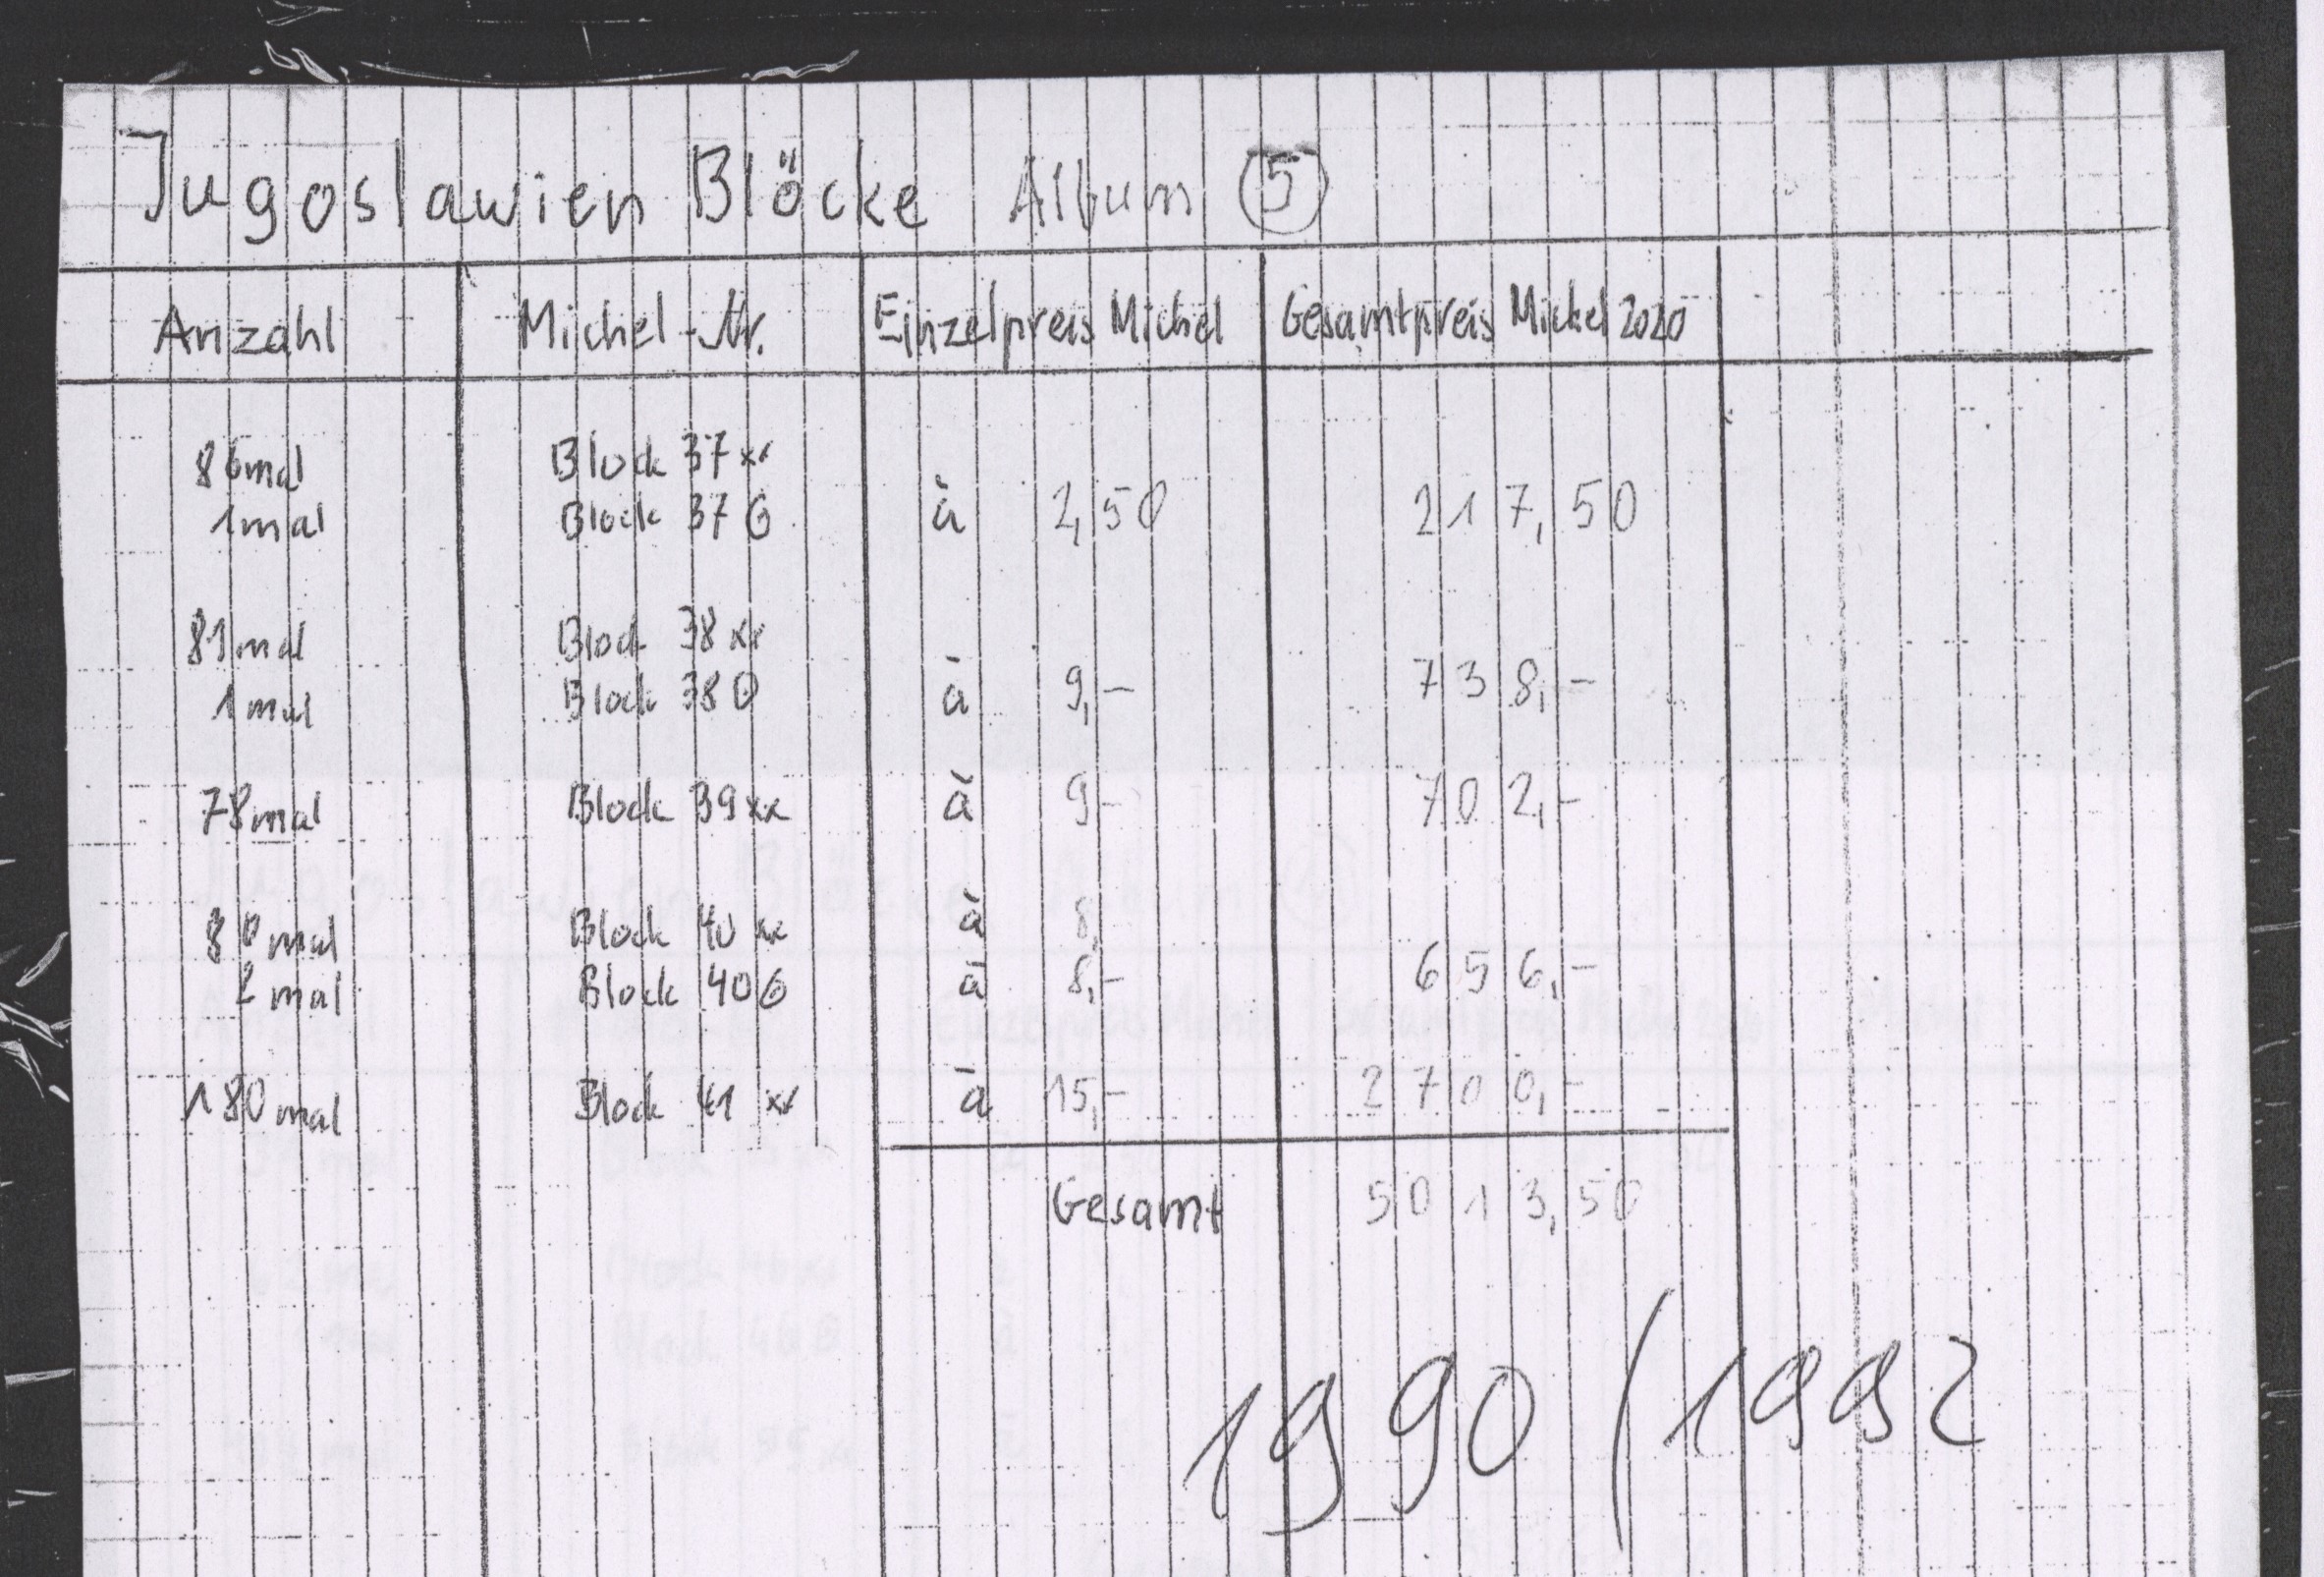 Jugoslawien Blöcke Album 5
Anzahl Michel-Nr. Einzelpreis Michel Gesamtpreis Michel 2020
86mal Block 37 xx
1mal Block 37 ʘ à 2,50 217,50
81mal Block 38 xx
1mal Block 38 ʘ à 9,- 738,-
78mal Block 39 xx à 9- 702,-
80mal Block 40 xx à 8,
2mal Block 40 ʘ à 8,- 656,-
180mal Block 41 xx à 15,- 2700,-
Gesamt 5013,50
1990/1992